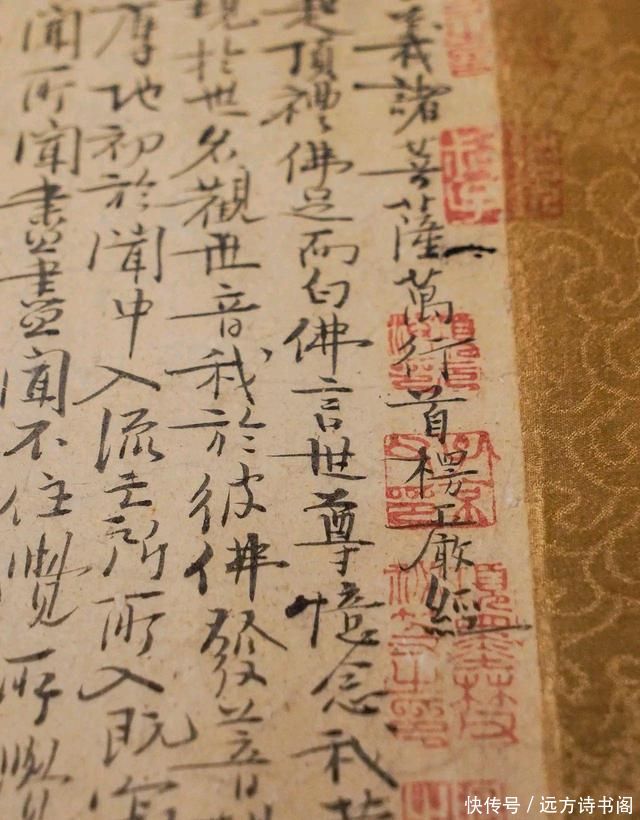 義諸菩薩萬行首楞嚴經
起頂禮佛足而白佛言世尊憶念我
現於世名觀世音我於彼佛發菩
摩地初於聞中入流亡所所入既寂
聞所聞盡盡聞不住覺所覺
快传号／远方诗书阁